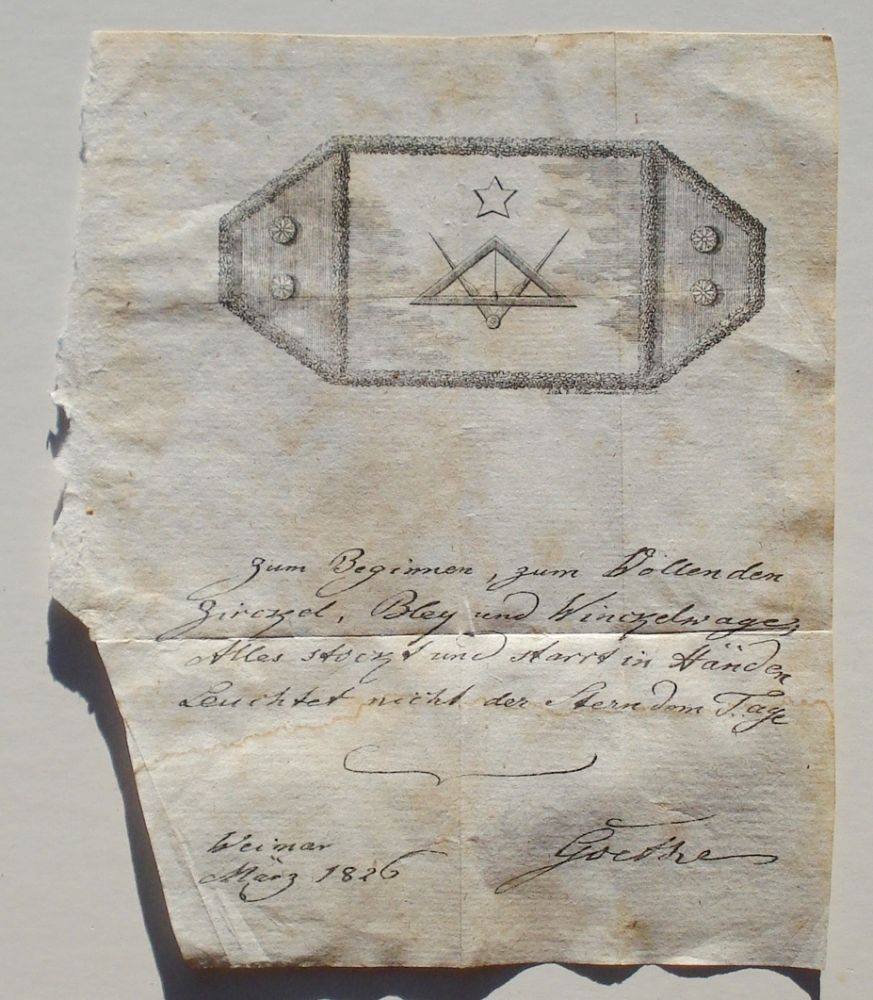 Zum Beginnen, zum Vollenden
Zirckel, Bley und Winckelwage,
Alles stockt und starrt in Händen
Leuchtet nicht der Stern dem Tage
Weimar
März 1826
Goethe